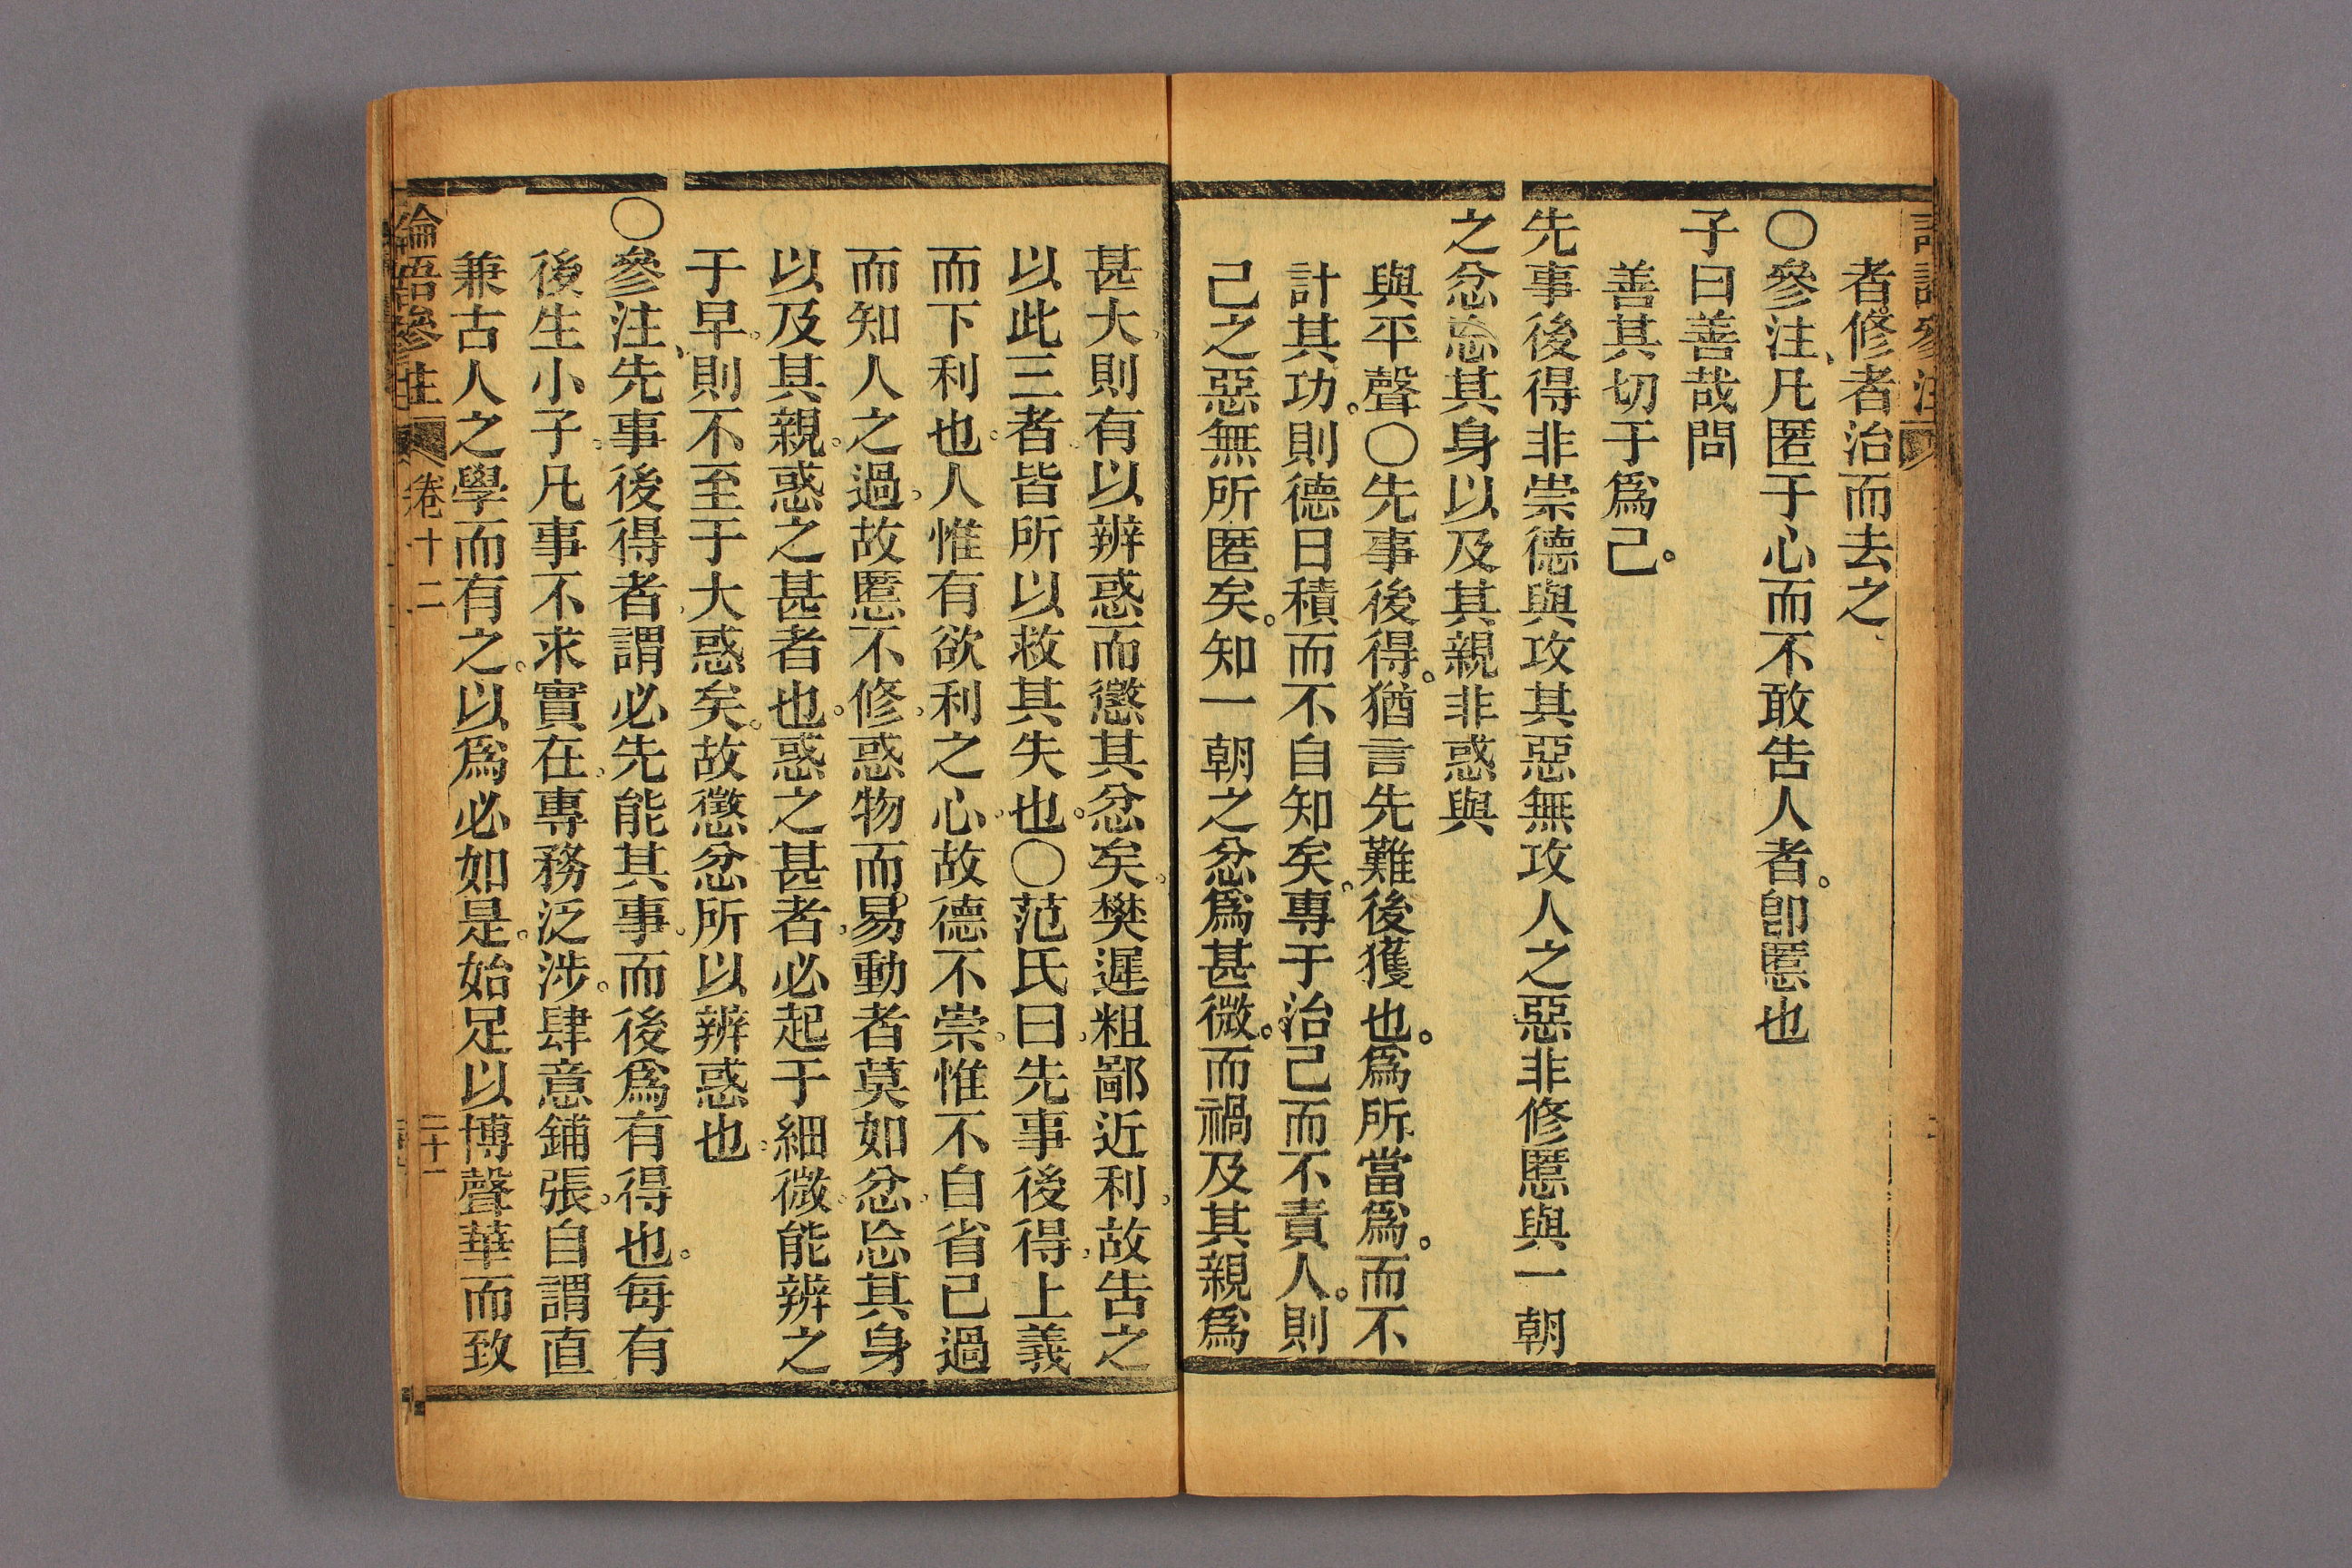 者修者治而去之、
〇參注、凡匿于心而不敢告人者。卽慝也
子曰善哉問
善其切于爲己。
先事後得非崇德與攻其惡無攻人之惡非修慝與一朝
之忿忘其身以及其親非惑與
與平聲〇先事後得。猶言先難後獲也。爲所當爲。而不
計其功。則德日積而不自知矣。專于治己而不責人。則
己之惡無所匿矣。知一朝之忿爲甚微。而禍及其親爲
甚大。則有以辨惑而懲其忿矣。樊遲粗鄙近利。故告之
以此三者。皆所以救其失也。〇范氏曰、先事後得、上義
而下利也。人惟有欲利之心。故德不崇。惟不自省己過
而知人之過。故慝不修、惑物而易動者莫如忿、忘其身
以及其親。惑之甚者也。惑之甚者、必起于細微、能辨之
于早。則不至于大惑矣。故懲忿所以辨惑也。
〇參注、先事後得者、謂必先能其事。而後爲有得也。每有
後生小子。凡事不求實在。專務泛涉。肆意鋪張。自謂直
兼古人之學而有之。以爲必如是。始足以博聲華而致
論語參注
卷十二
二十一